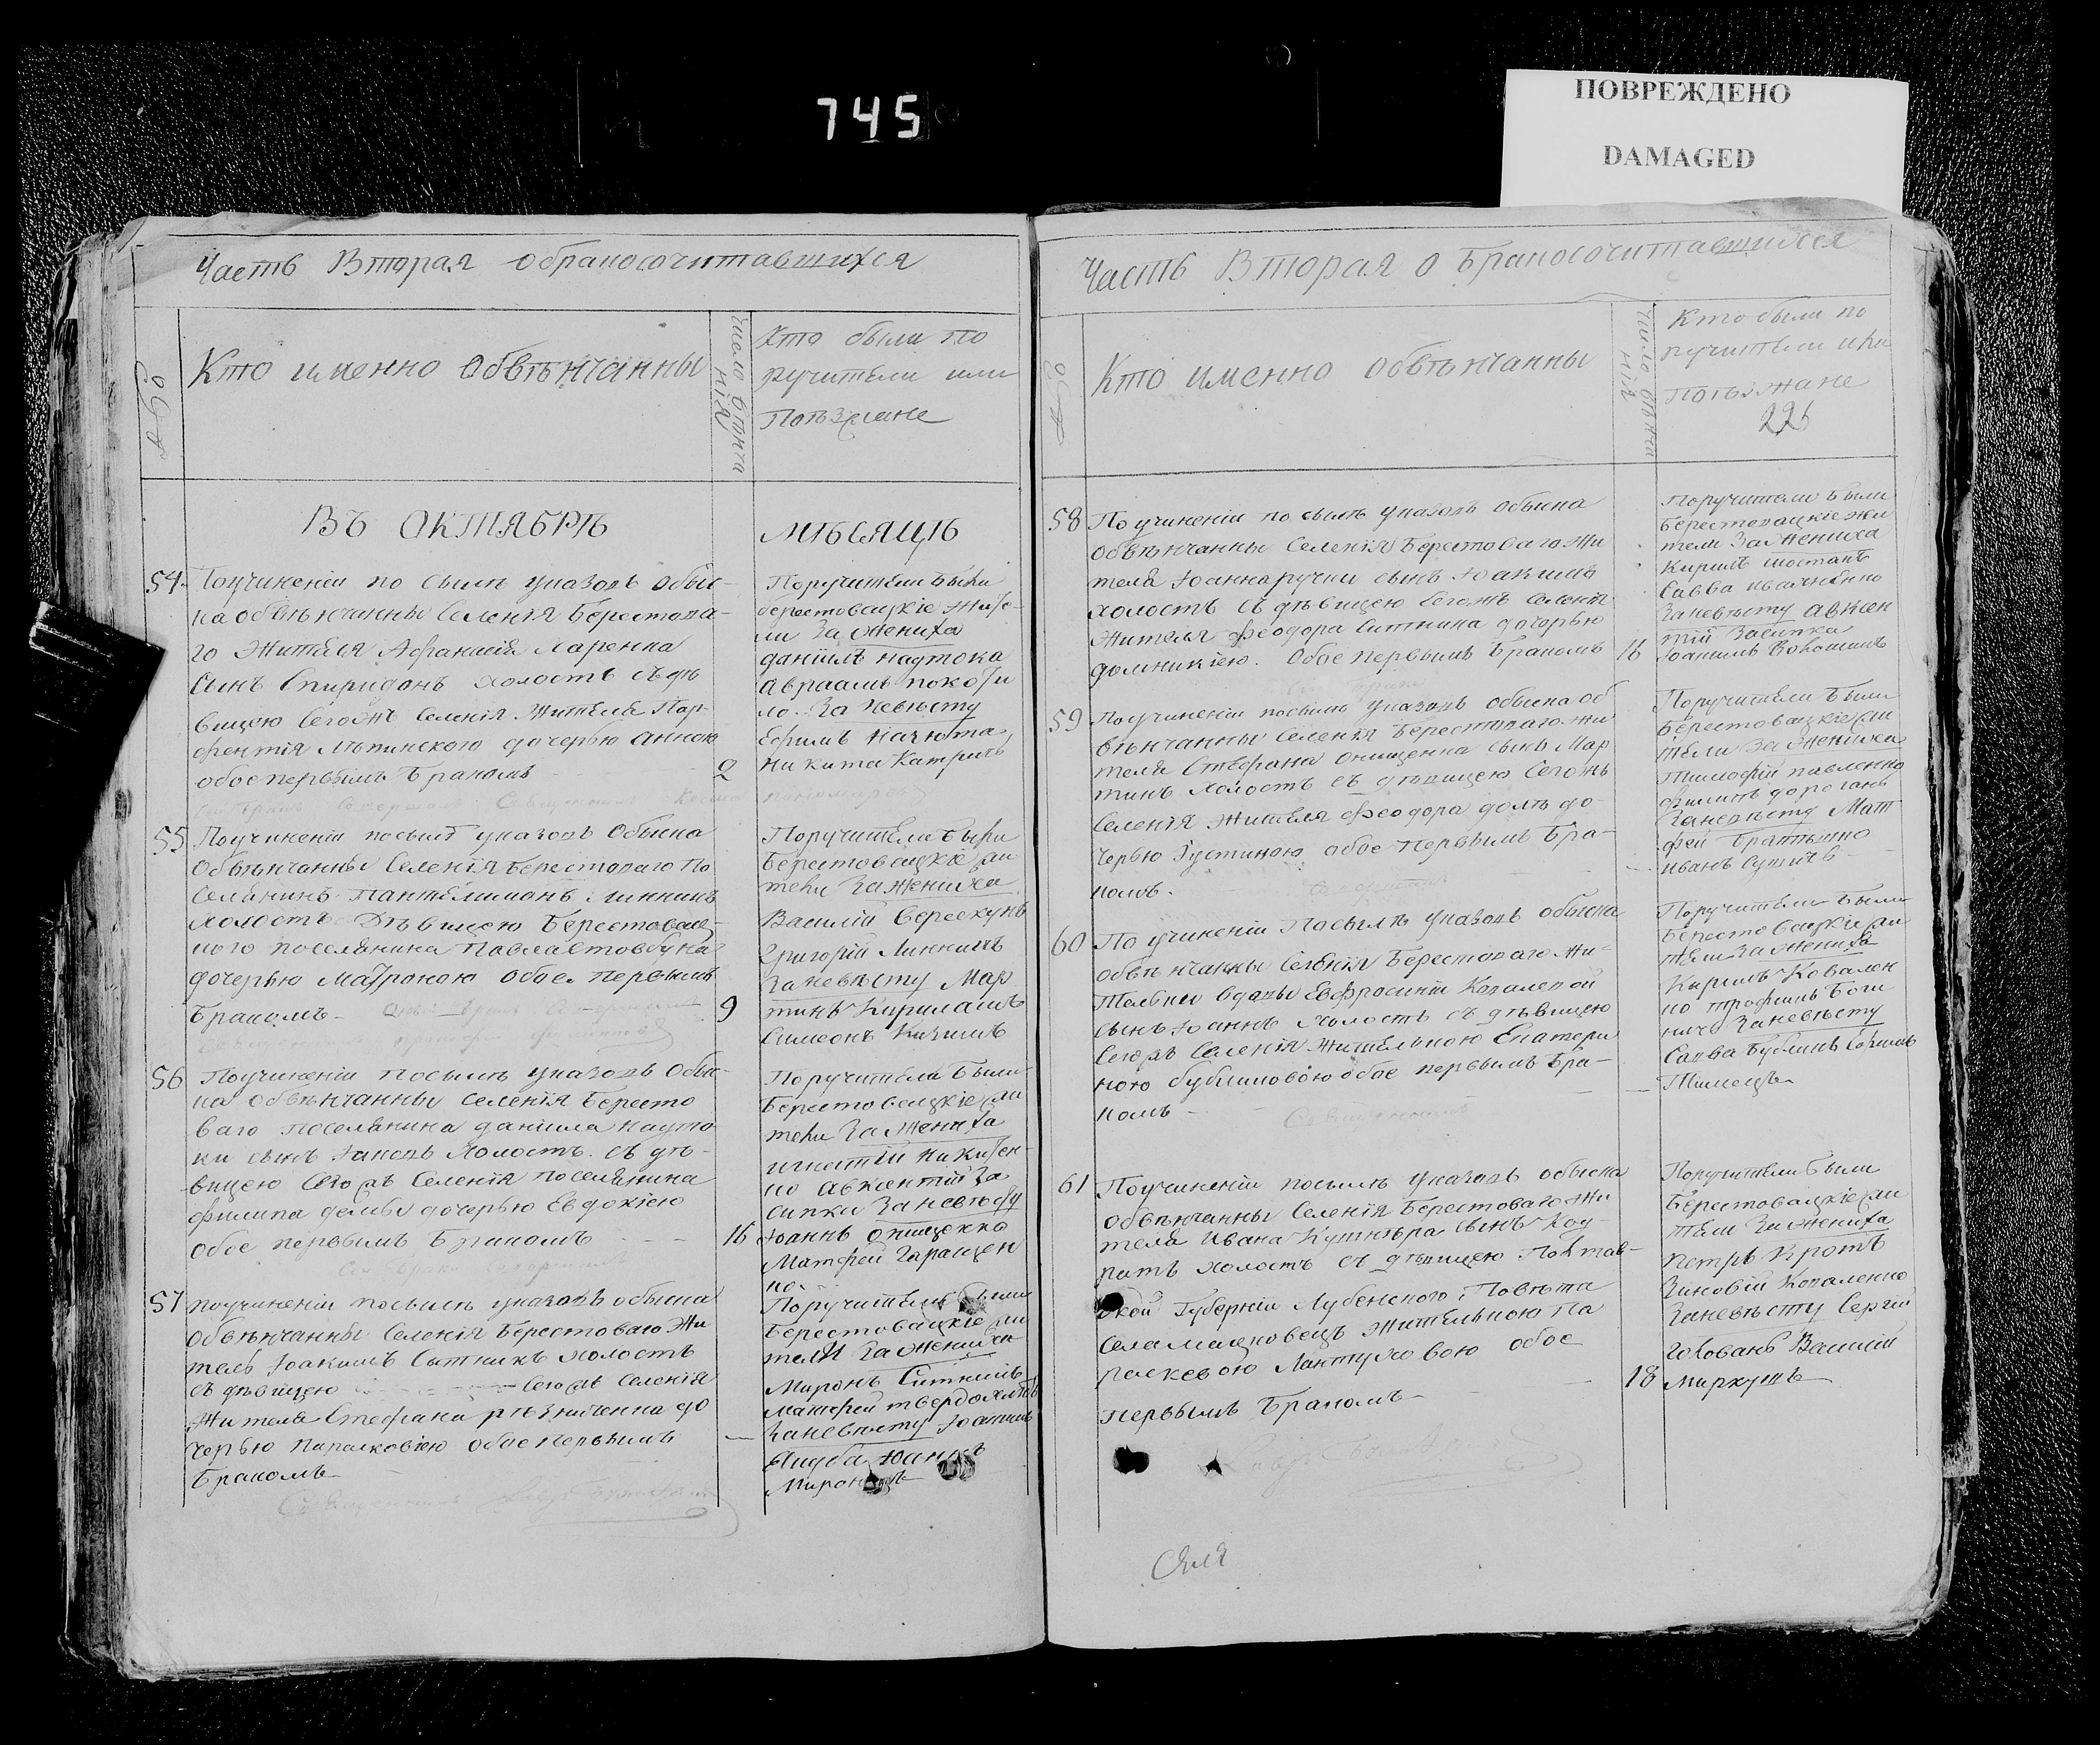 745
ПОВРЕЖДЕНО
DAMAGED
Часть Вторая обракосочитавшихся
Кто именно Обвѣнчанны
число бытія
Кто были по
ручители или
Поѣзжане
ВЪ ОКТЯБРѢ
МѢСЯЦѢ
54. Поучиненіи по силѣ указовъ обыс-
ка обвѣнчанны Селенія Берестова-
го Жителя Афанасія Харенка
Сынъ Спиридонъ холостъ съ дѣ
вицею Сегожъ Селенія Жителя Пар-
фентія Лѣпинского дочерью Анною
обое первымъ Бракомъ
2
Поручители Были
берестовацкіе жите-
ли За жениха
даніилъ каутока
Авраамъ покоти
ло. За Невѣсту
Ефимъ Начюта
Никита Катричъ
55 Поучиненіи посылѣ указовъ Обыска
Обвѣнчанны Селенія Берестоваго По
Селянинъ Пантелимонъ Линникъ
Холостъ Дѣвицею Берестовац
кого поселянина Павла Стовбуна
дочерью Матроною обое первымъ
Бракомъ
9
Поручители были
Берестовацкіе жи
тели За жениха
Василій Верескунъ
Григорій Линникъ
Заневѣсту Мар
тинъ Кирилашъ
Симеонъ Кизимъ
56 Поучиненіи посылѣ указовъ Обыс-
ка обвѣнчанны селенія Бересто
ваго поселянина даніила кауто
ки сынъ Іаковъ Холостъ. съ дѣ-
вицею Сегожъ Селенія поселянина
филипа демы дочерью Евдокіею
обое первымъ Бракомъ
16
Поручители Были
Берестовацкіе жи
тели За Жениха
игнатій никитен-
ко Авксентій За
сипка Заневѣсту
Іоаннъ онищенко
Матфей Геращен
ко
57 поучиненіи посылѣ указовъ обыска
Обвѣнчанны Селенія Берестоваго Жи
тель Іоакимъ Сытникъ холостъ
съ дѣвицею Сегожъ Селенія
Жителя Стефана рѣзниченка до
черью Парасковіею обое первымъ
Бракомъ
Поручители были
Берестовацкіе жи
тели За жениха
Миронъ Ситникъ
Матфей твердохлѣбъ
Заневѣсту Іоакимъ
Яцуба Іоаннъ
Миронецъ
Часть Вторая о Бракосочитавшихся
Кто именно обвѣнчанны
Кто были по
ручители или
поѣзжане
226
58 По учиненіи по силѣ указовъ обыска
Обвѣнчанны Селенія Берестоваго Жи
теля Іоанна ручки сынъ Іоакимъ
холостъ съ дѣвицею Сегожъ Селенія
Жителя Феодора Ситника дочерью
домникіею. Обое первымъ Бракомъ
16
Поручители были
Берестовацкіе жи
тели За Жениха
Кирилъ шостакъ
Савва
Заневѣсту Авксен
тій Засипка
Іоакимъ Волошинъ
59 Поучиненіи посылѣ указовъ обыска об
вѣнчанны Селенія Берестоваго жи
теля Стефана онищенка сынъ Мар
тинъ холостъ съ дѣвицею Сегожъ
Селенія Жителя Феодора долѣ до-
черью Іустиною обое первымъ Бра-
комъ.
Поручители Были
Берестовацкіе жи
тели За Жениха
Тимофій павленко
филипъ дорогань
Заневѣсту Мат
фей Братышко
иванъ
60 По учиненіи Посылѣ указовъ обыска
обвѣнчанны Селенія Берестоваго Жи-
Тельки вдовы Евфросиніи Ковалевой
сынъ Іоаннъ холостъ съ дѣвицею
Сегожъ Селенія Жителькою Екатери
ною бубликовою обое первымъ Бра-
комъ
Поручители Были
Берестовацкіе жи
тели За жениха
Кирилъ Ковален
ко трофимъ
Заневѣсту
Савва Бубликъ
61 Поучиненіи посылѣ указовъ обыска
Обвѣнчанны Селенія Берестоваго Жи
теля Ивана Кушнѣра сынъ Код
ратъ холостъ съ дѣвицею Полтав-
ской Губерніи Лубенского Повѣта
Села Мацковецъ Жителькою Па
раскевою Лантуховою обое
первымъ Бракомъ
18
Поручители были
Берестовацкіе жи
тели За жениха
петръ Кротъ
Зиновій Коваленко
Заневѣсту Сергій
Головань Василій
Миркушъ